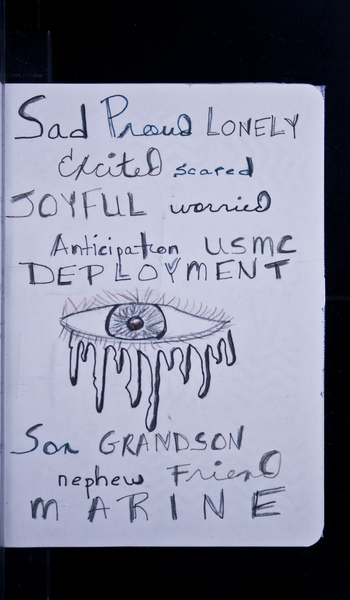 Sad Proud LONELY
Excited scared
JOYFUL worried
Anticipation USMC
DEPLOYMENT
Son GRANDSON
nephew Friend
mARINE